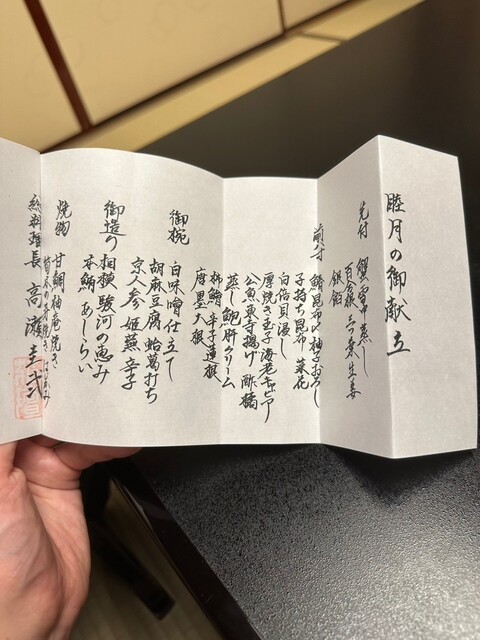 睦月の御献立
先付
蟹雪中蒸し
百合根 三つ葉 生姜
銀餡
前寸
鱚昆布〆 柚子おろし
子持ち昆布 菜花
白倍貝浸し
厚焼き玉子 海老キャビア
公魚東寺揚げ 酢橘
蒸し鮑 肝クリーム
柿鱠 辛子蓮根
唐墨大根
御椀
白味噌仕立て
胡麻豆腐 蛤葛打ち
京人参 姫蕪 辛子
御造り
相模 駿河の恵み
本鮪 あしらい
焼物
甘鯛柚庵焼き
総料理長 高濱